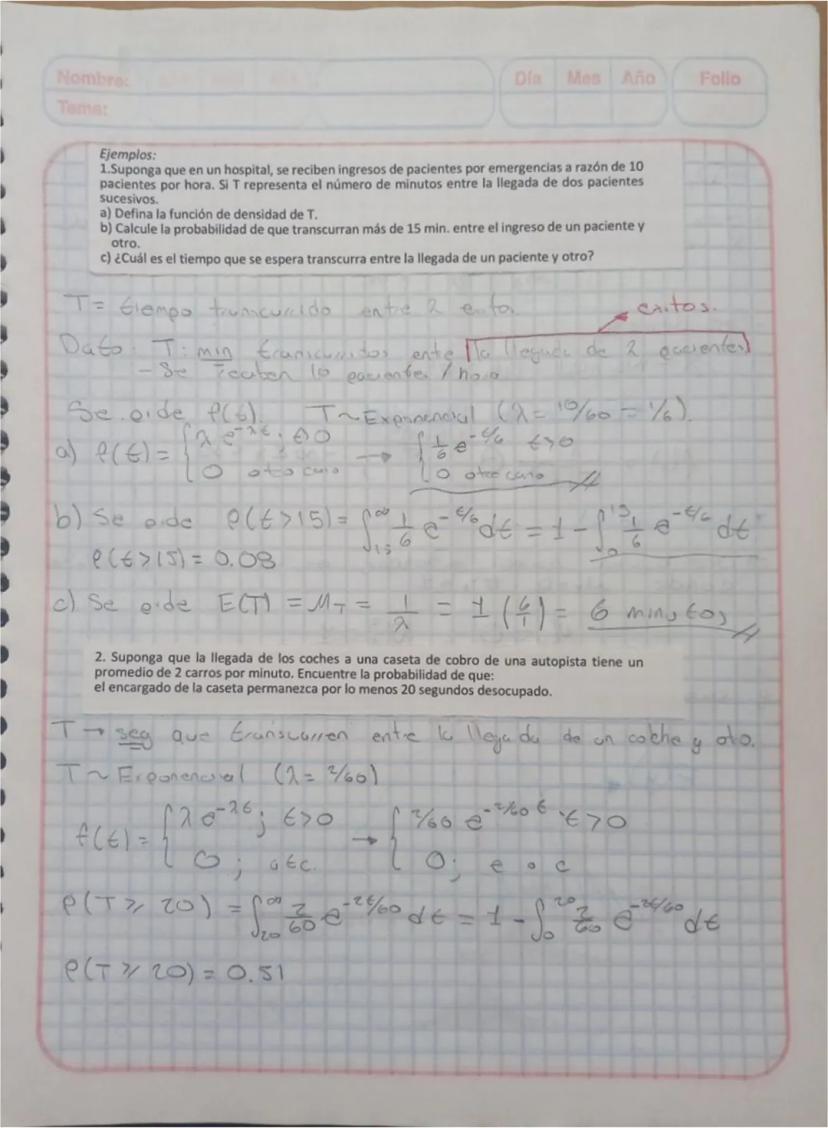 Nombre:
Día Mes Año Folio
Tema:
Ejemplos:
1.Suponga que en un hospital, se reciben ingresos de pacientes por emergencias a razón de 10
pacientes por hora. Si T representa el número de minutos entre la llegada de dos pacientes
sucesivos.
a) Defina la función de densidad de T.
b) Calcule la probabilidad de que transcurran más de 15 min. entre el ingreso de un paciente y
otro.
c) ¿Cuál es el tiempo que se espera transcurra entre la llegada de un paciente y otro?
T = tiempo transcurrido entre 2
exitos.
Dato: T: min transcurridos entre la llegada de 2 pacientes
- Se reciben 10 pacientes / hora
Se pide f(t). T ~ Exponencial (λ = 10/60 = 1/6).
a) f(t) = { λ e^-λt ; t>0 → { 1/6 e^-t/6 t>0
0 otro caso 0 otro caso
b) Se pide P(t > 15) = ∫_15^∞ 1/6 e^-t/6 dt = 1 - ∫_0^15 1/6 e^-t/6 dt
P(t > 15) = 0.08
c) Se pide E(T) = M_T = 1/λ = 1 (6/1) = 6 minutos
2. Suponga que la llegada de los coches a una caseta de cobro de una autopista tiene un
promedio de 2 carros por minuto. Encuentre la probabilidad de que:
el encargado de la caseta permanezca por lo menos 20 segundos desocupado.
T → seg que transcurren entre la llegada de un coche y otro.
T ~ Exponencial (λ = 2/60)
f(t) = { λ e^-λt ; t>0 → { 2/60 e^-2/60 t t>0
0 ; otc. 0; e o c
P(T ≥ 20) = ∫_20^∞ 2/60 e^-2t/60 dt = 1 - ∫_0^20 2/60 e^-2t/60 dt
P(T ≥ 20) = 0.51